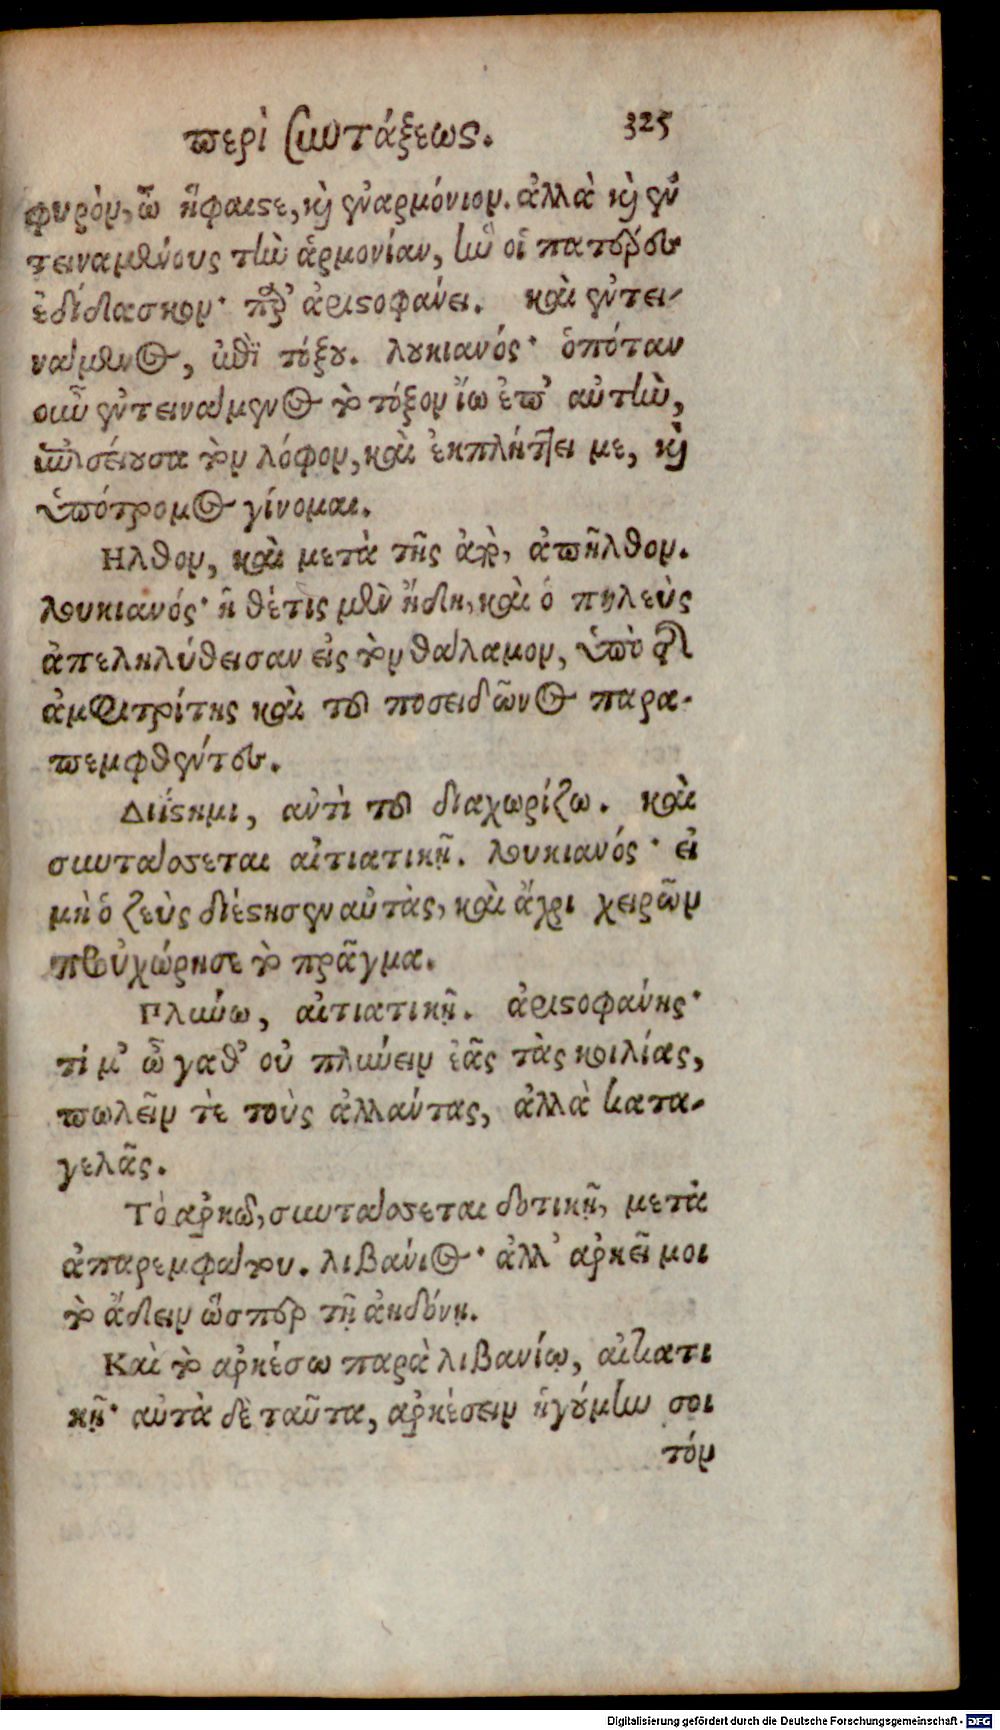 περὶ συντάξεως. 325
φυρὸν, ὦ ἥφαιστε, καὶ ἐναρμόνιον. ἀλλὰ καὶ ἐν
τειναμένους τὴν ἁρμονίαν, ἣν οἱ πατέρες
ἐδίδασκον· παρ' ἀριστοφάνει. καὶ ἐντει-
νάμενος, ἐπὶ τόξου. λουκιανός· ὁπόταν
οὖν ἐντεινάμενος τὸ τόξον ἴω ἐπ' αὐτὴν,
ἐπισείουσα τὸν λόφον, καὶ ἐκπλήττει με, καὶ
ὑπότρομος γίνομαι.
Ηλθον, καὶ μετὰ τῆς ἀπὸ, ἀπῆλθον.
λουκιανός· ἡ θέτις μὲν ἤδη, καὶ ὁ πηλεὺς
ἀπεληλύθεισαν εἰς τὸν θάλαμον, ὑπὸ τῆς
ἀμφιτρίτης καὶ τοῦ ποσειδῶνος παρα-
πεμφθέντες.
Διΐστημι, αὐτὶ τοῦ διαχωρίζω. καὶ
συντάσσεται αἰτιατικῇ. λουκιανός· εἰ
μὴ ὁ ζεὺς διέστησεν αὐτὰς, καὶ ἄχρι χειρῶν
προὐχώρησε τὸ πρᾶγμα.
Πλύνω, αἰτιατικῇ. ἀριστοφάνης·
τί μ' ὦ γαθ' οὐ πλύνειν ἐᾶς τὰς κοιλίας,
πωλεῖν τὲ τοὺς ἀλλάντας, ἀλλὰ κατα-
γελᾶς.
Τὸ ἀρκῶ, συντάσσεται δοτικῇ, μετὰ
ἀπαρεμφάτου. λιβάνιος· ἀλλ' ἀρκεῖ μοι
τὸ ἄδειν ὥσπερ τῇ ἀηδόνῃ.
Καὶ τὸ ἀρκέσω παρὰ λιβανίῳ, αἰτιατι
κῇ· αὐτὰ δὲ ταῦτα, ἀρκέσειν ἡγούμην σοι
τόν
Digitalisierung gefördert durch die Deutsche Forschungsgemeinschaft - DFG